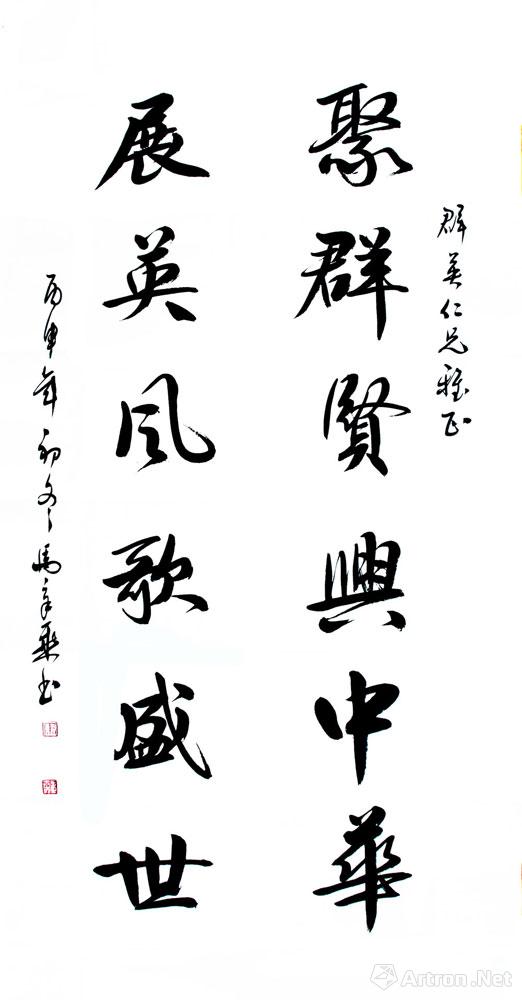 群英仁兄雅正
聚群賢興中華
展英風歌盛世
丙申年初冬馬章乘书
Artron.Net